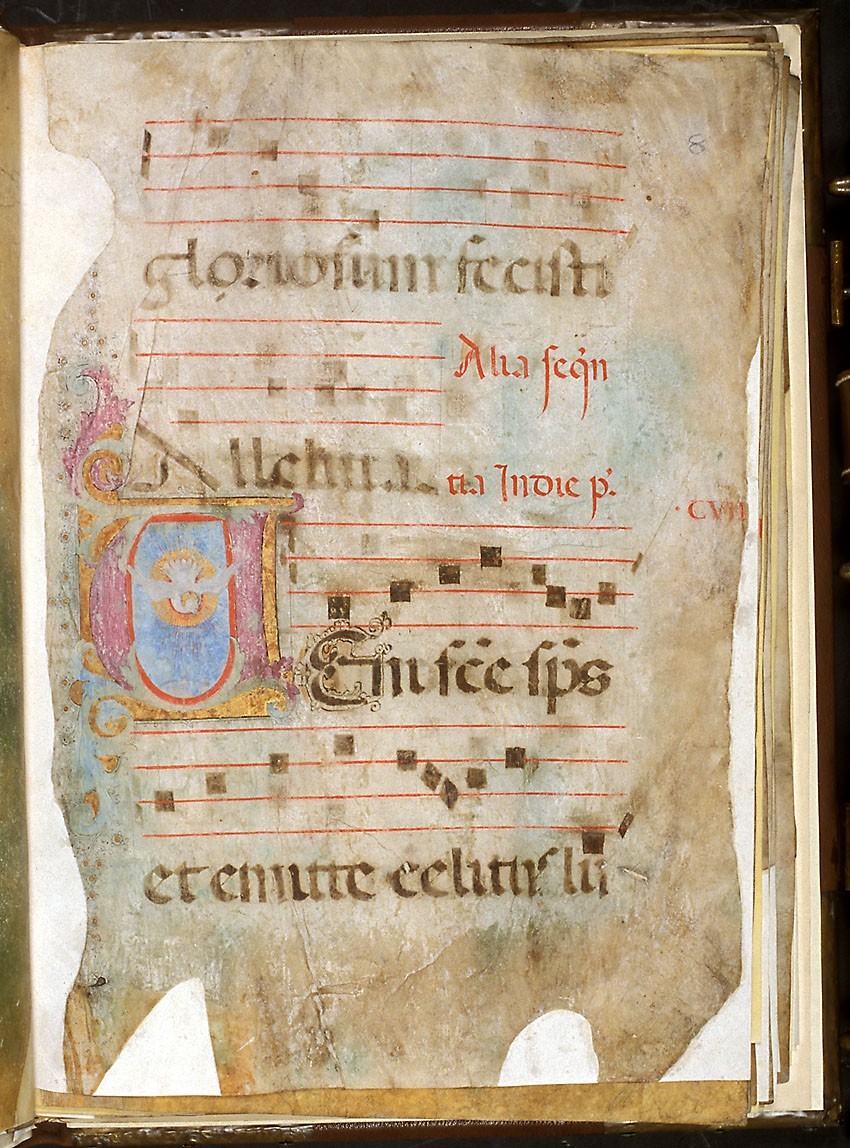 8
gloriosum fecisti
Alia seq̃n
Alleluia
tia In die p.
CVII
VEni sc̃e sp̃s
et emitte celitus lu